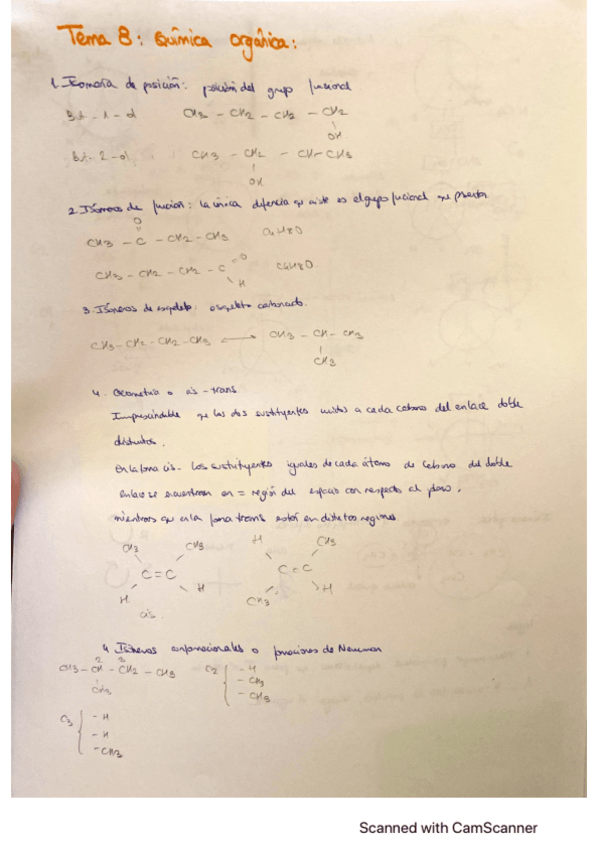 Tema 8: Química orgánica:
1. Isomería de posición: posición del grupo funcional
But-1-ol CH3 - CH2 - CH2 - CH2
OH
but-2-ol CH3 - CH2 - CH-CH3
OH
2. Isómeros de función: la única diferencia que existe es el grupo funcional que
O
CH3 - C - CH2 - CH3 C4H8O
CH3 - CH2 - CH2 - C O C4H8O
H
3. Isómeros de esqueleto: esqueleto carbonado.
CH3-CH2-CH2-CH3 CH3 - CH - CH3
CH3
4. Geometría o cis-trans
Imprescindible que los dos sustituyentes unidos a cada carbono del enlace doble
distintos.
En la forma cis- los sustituyentes iguales de cada átomo de carbono del doble
enlace se encuentran en = región del espacio con respecto al plano,
mientras que en la forma trans están en distintas regiones
CH3 CH3 H CH3
C=C C=C
H H CH3 H
cis
4 Isómeros conformacionales o proyecciones de Newman
2 3
CH3-CH-CH2-CH3 C2 -H
CH3 -CH3
-CH3
C3 -H
-H
-CH3
Scanned with CamScanner